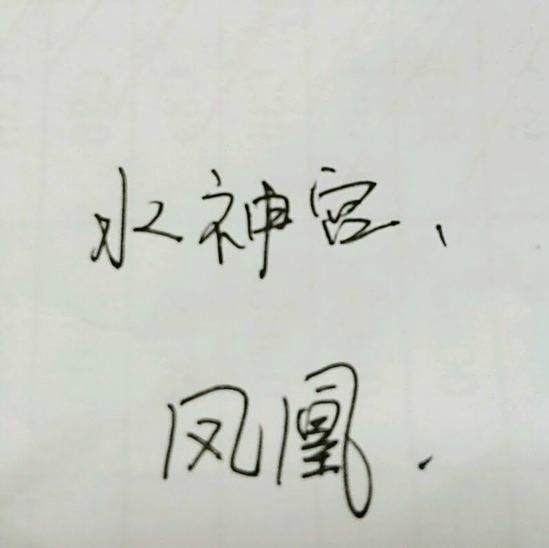 水神宫、
凤凰.